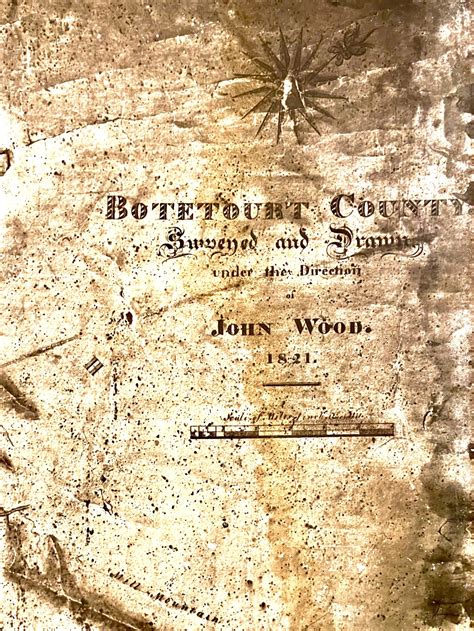 BOTETOURT COUNTY
Surveyed and Drawn
under the Direction
of
JOHN WOOD.
1821.
Scale of Miles
Mountain